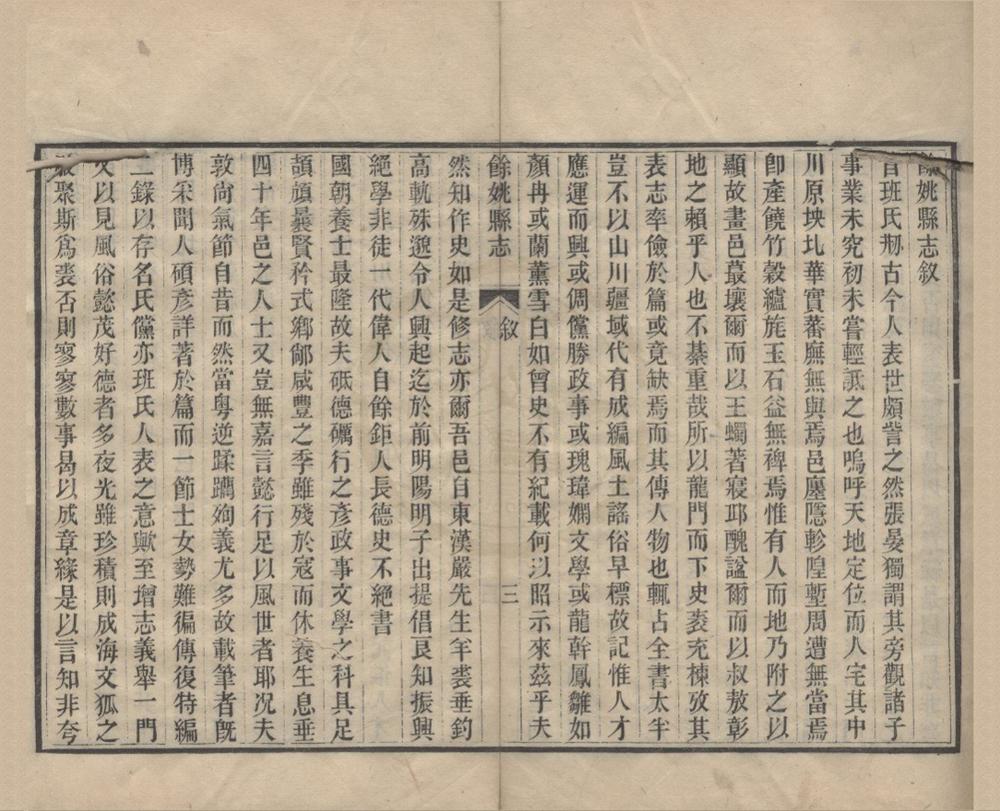 餘姚縣志敘
官班氏刱古今人表世頗訾之然張晏獨謂其旁觀諸子
事業未究初未嘗輕詆之也嗚呼天地定位而人宅其中
川原坱圠華實蕃廡無與焉邑廛隱軫隍塹周遭無當焉
卽產饒竹穀纑旄玉石益無裨焉惟有人而地乃附之以
顯故畫邑蕞壤爾而以王蠋著寢邱醜謚爾而以叔敖彰
地之賴乎人也不綦重哉所以龍門而下史袠充棟攷其
表志率儉於篇或竟缺焉而其傳人物也輒占全書太半
豈不以山川疆域代有成編風土謠俗早標故記惟人才
應運而興或倜儻勝政事或瑰瑋嫻文學或龍幹鳳雛如
顏冉或蘭薰雪白如曾史不有紀載何以昭示來茲乎夫
餘姚縣志
敘
三
然知作史如是修志亦爾吾邑自東漢嚴先生羊裘垂釣
高軌殊邈令人興起迄於前明陽明子出提倡良知振興
絕學非徒一代偉人自餘鉅人長德史不絕書
國朝養士最隆故夫砥德礪行之彥政事文學之科具足
頡頏曩賢矜式鄉鄰咸豐之季雖殘於寇而休養生息垂
四十年邑之人士又豈無嘉言懿行足以風世者耶况夫
敦尙氣節自昔而然當粤逆蹂躪殉義尤多故載筆者旣
博采聞人碩彥詳著於篇而一節士女勢難徧傳復特編
二錄以存名氏儻亦班氏人表之意歟至增志義舉一門
又以見風俗懿茂好德者多夜光雖珍積則成海文狐之
聚斯爲裘否則寥寥數事曷以成章緣是以言知非夸